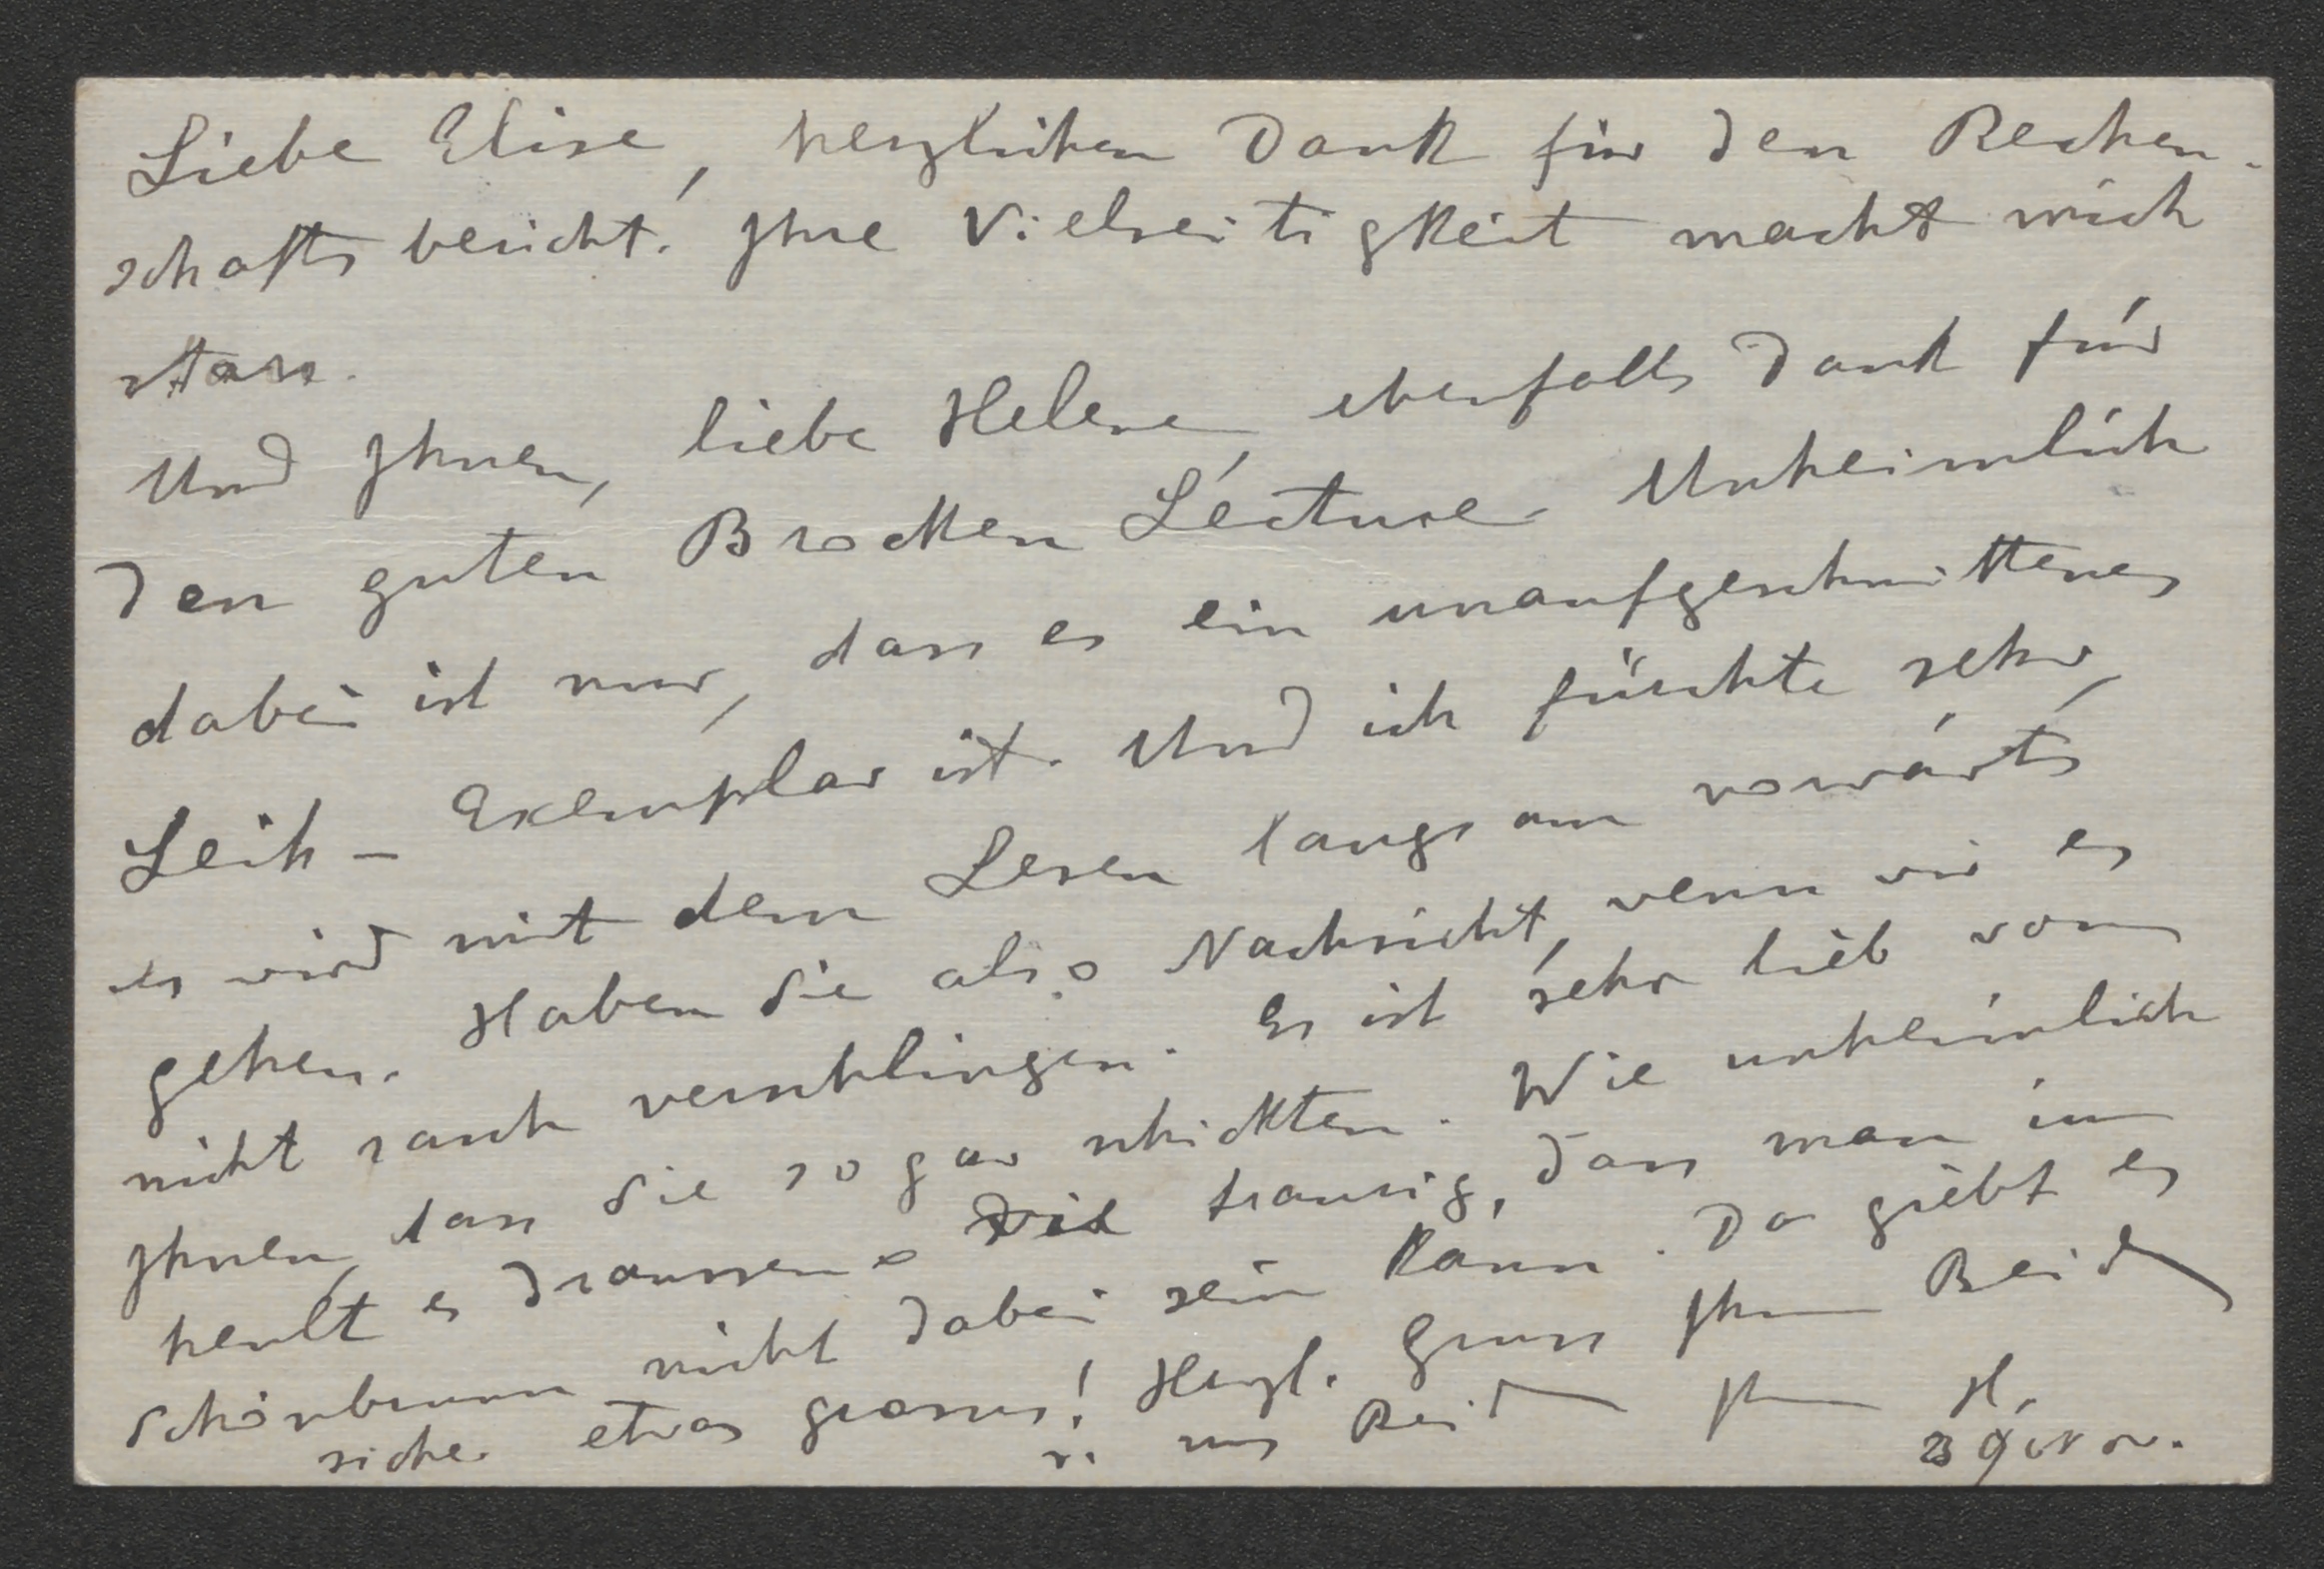 Liebe Elise, herzlichen Dank für den Rechen-
schaftsbericht! Ihre Vielseitigkeit macht mich
starr.
Und Ihnen, liebe Helene, ebenfalls Dank für
den guten Brocken Lécture. Unheimlich
dabei ist nur, dass es ein unaufgeschnittenes
Leih-Exemplar ist. Und ich fürchte sehr,
es wird mit dem Lesen langsam vorwärts
gehen. Haben Sie also Nachsicht, wenn wir es
nicht rasch verschlingen. Es ist sehr lieb von
Ihnen, dass Sie sogar schickten. Wie unheimlich
heult es draussen u. wie traurig, dass man im
Schönbrunn nicht dabei sein kann. Da giebt es
sicher etwas grosses! Herzl. Gruss Ihnen Beiden
v. uns Beiden Ihr H.